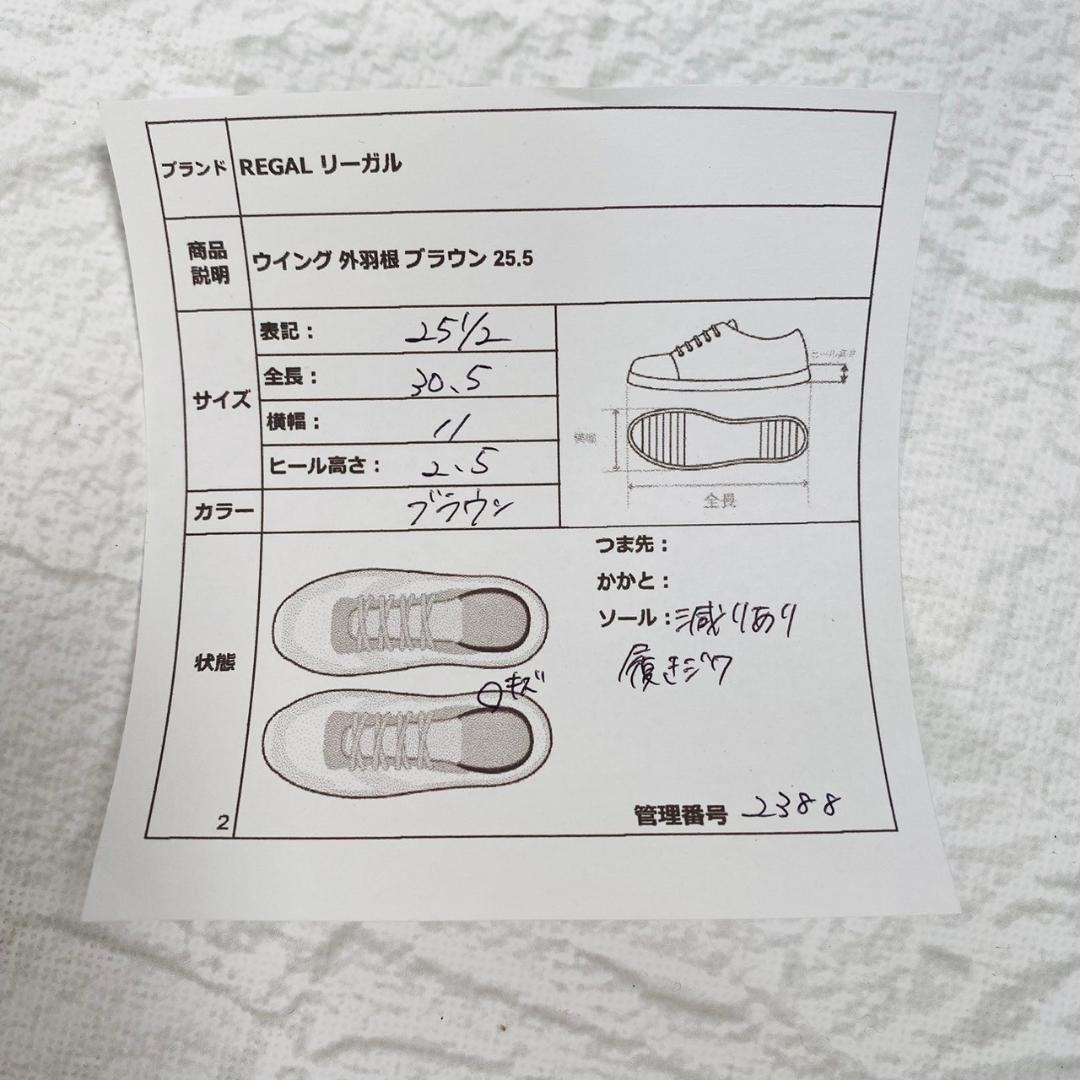 ブランド REGAL リーガル
商品
説明
ウイング 外羽根 ブラウン 25.5
サイズ
表記： 25 1/2
全長： 30.5
横幅： 11
ヒール高さ： 2.5
ヒール高さ
横幅
全長
カラー ブラウン
状態
つま先：
かかと：
ソール：減りあり
履きジワ
キズ
管理番号 2388
2